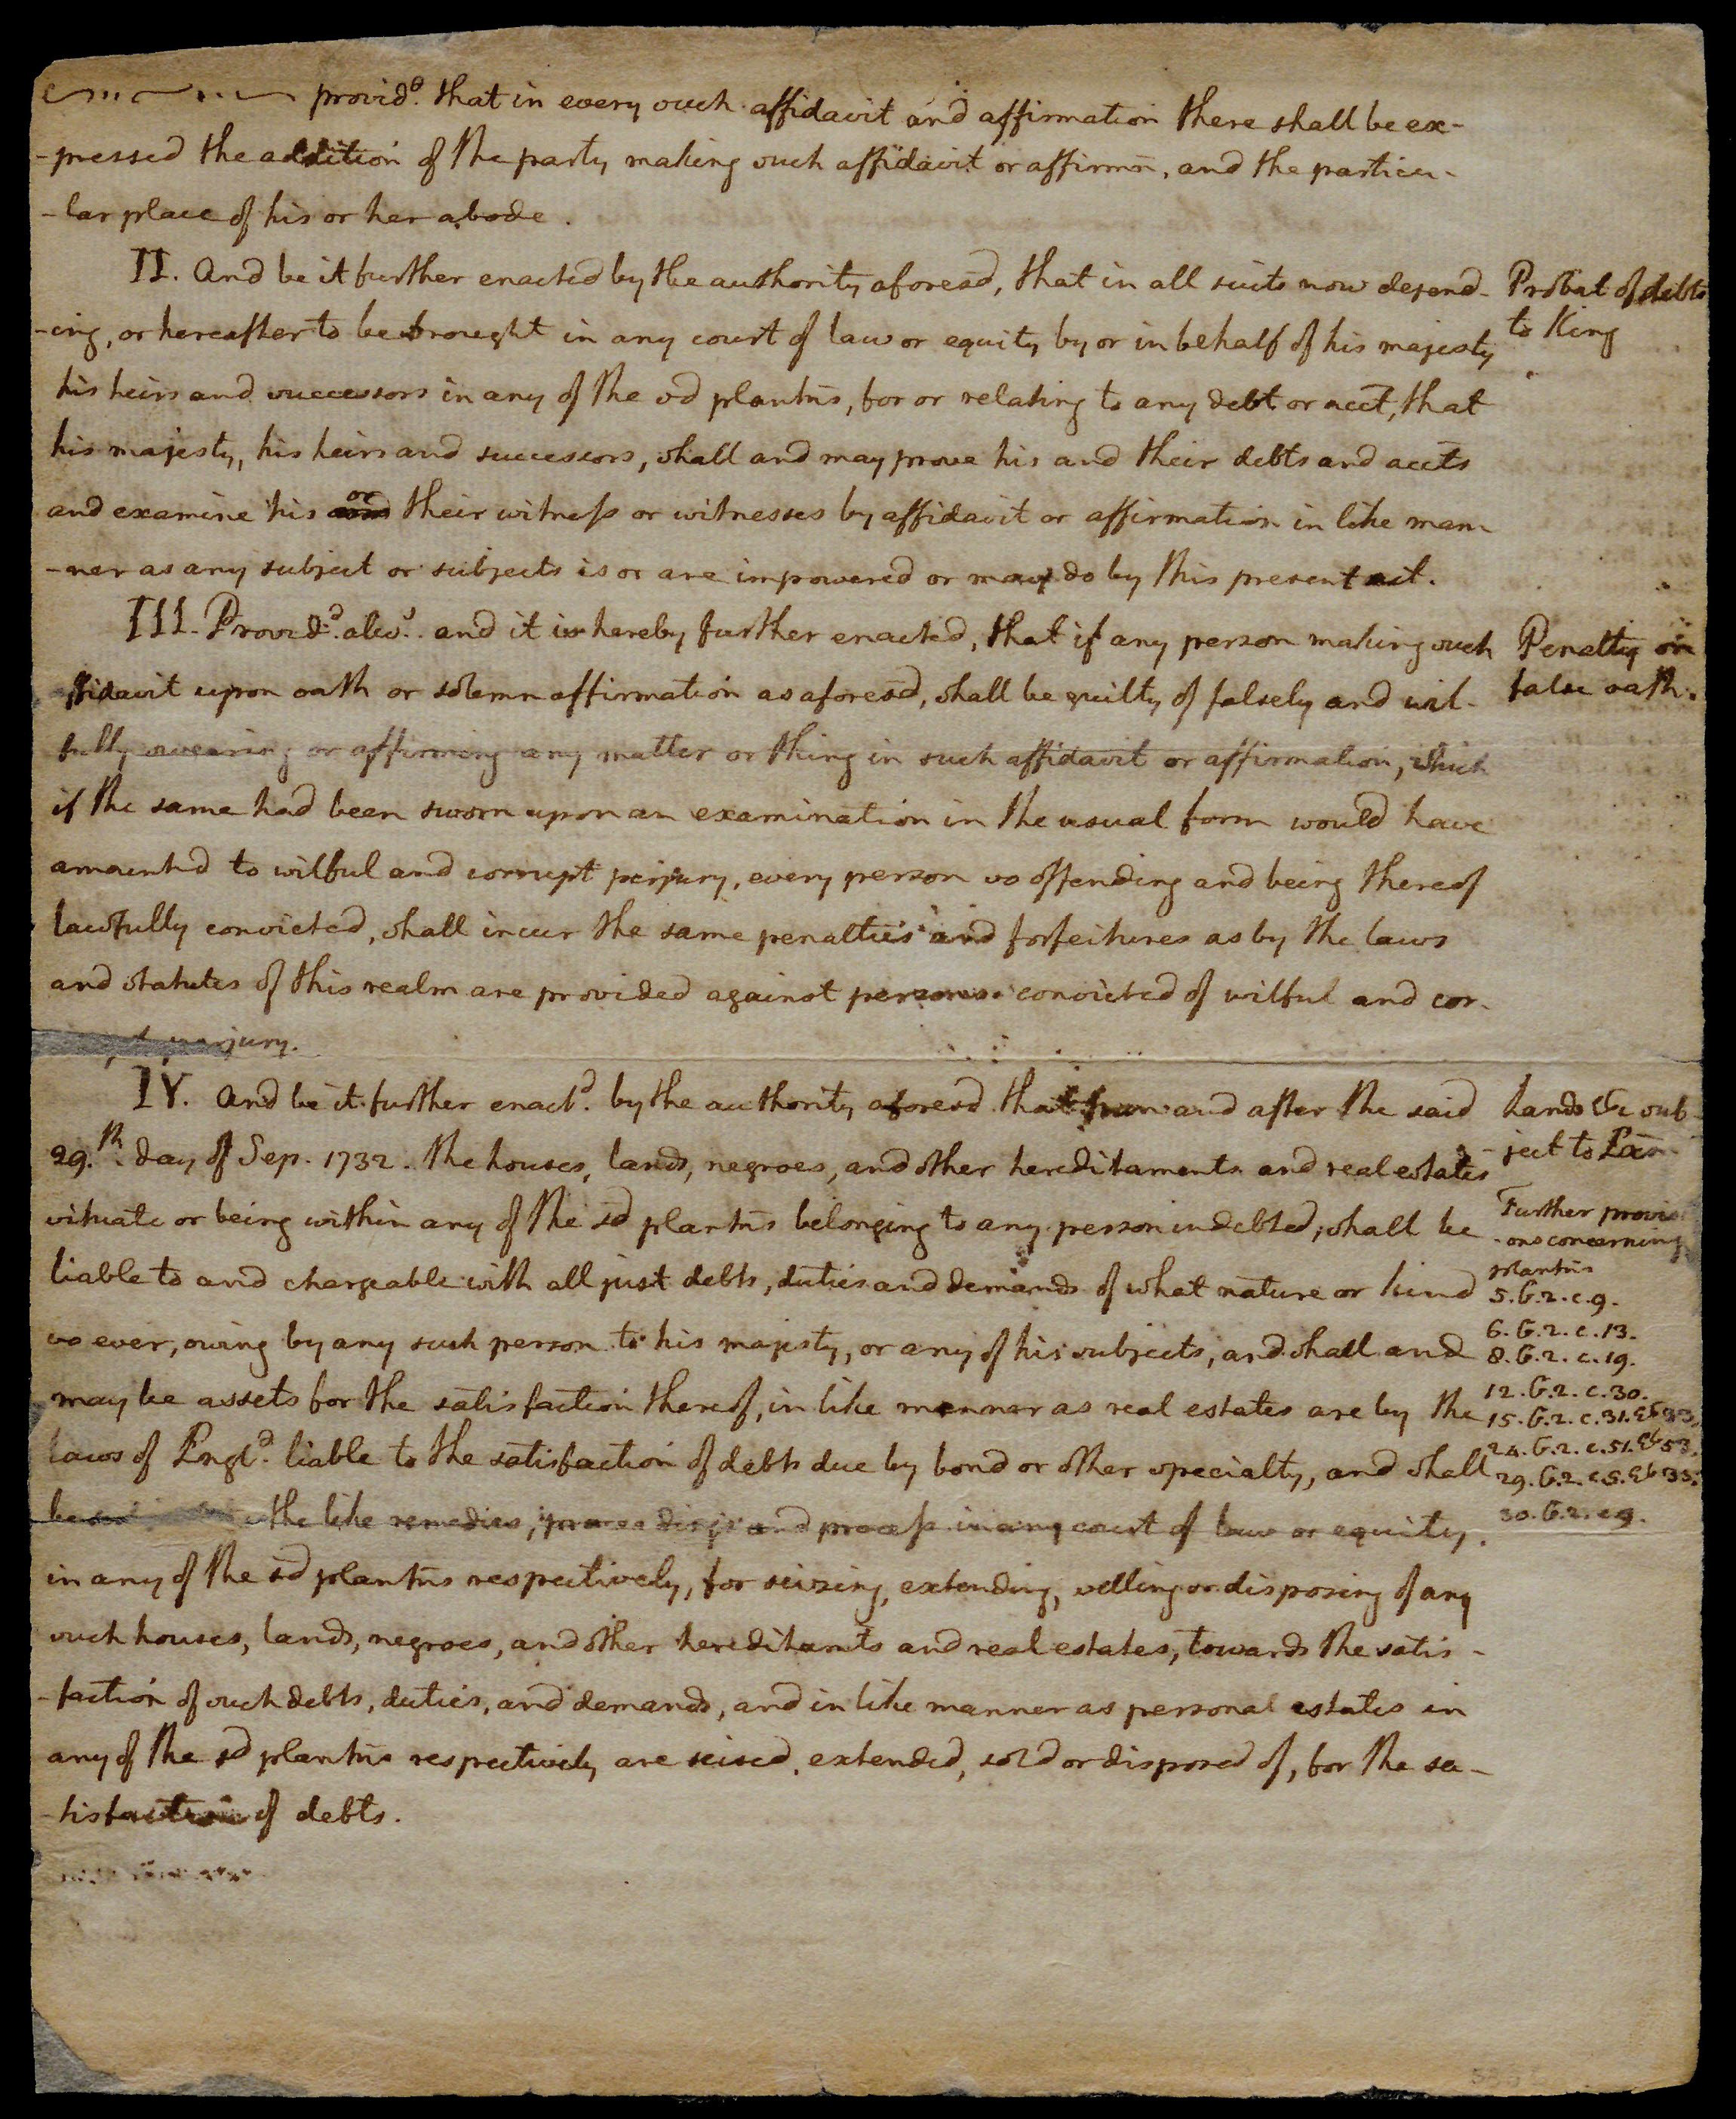 provid.d that in every such affidavit and affirmation there shall be ex-
-pressed the addition of the party making such affidavit or affirmn, and the particu-
-lar place of his or her abode.
II. And be it further enacted by the authority aforesd, that in all suits now depend-
-ing, or hereafter to be brought in any court of law or equity by or in behalf of his majesty
his heirs and successors in any of the sd plantns, for or relating to any debt or acct, that
his majesty, his heirs and successors, shall and may prove his and their debts and accts
and examine his or their witness or witnesses by affidavit or affirmation in like man-
-ner as any subject or subjects is or are impowered or may do by this present act.
III. Provid.d alw.s and it is hereby further enacted, that if any person making such
ffidavit upon oath or solemn affirmation as aforesd, shall be guilty of falsely and wil-
fully swearing or affirming any matter or thing in such affidavit or affirmation, which
if the same had been sworn upon an examination in the usual form would have
amounted to wilful and corrupt perjury, every person so offending and being thereof
lawfully convicted, shall incur the same penalties and forfeitures as by the laws
and statutes of this realm are provided against persons convicted of wilful and cor-
perjury.
IV. And be it further enact.d by the authority aforesd that from and after the said
29.th day of Sep. 1732. the houses, lands, negroes, and other hereditaments and real estates
situate or being within any of the sd plantns belonging to any person indebted, shall be
liable to and chargeable with all just debts, duties and demands of what nature or kind
so ever, owing by any such person to his majesty, or any of his subjects, and shall and
may be assets for the satisfaction thereof, in like manner as real estates are by the
laws of Engl.d liable to the satisfaction of debts due by bond or other specialty, and shall
be the like remedies, proceedings and process in any court of law or equity,
in any of the sd plantns respectively, for seizing, extending, selling or disposing of any
such houses, lands, negroes, and other hereditamts and real estates, towards the satis-
-faction of such debts, duties, and demands, and in like manner as personal estates in
any of the sd plantns respectively are seised, extended, sold or disposed of, for the sa-
-tisfaction of debts.
Probat of debts
to King
Penalty on
false oath.
Lands &c sub-
-ject to Exn.
Further provisi
-ons concerning
plantns
5.G.2.c.9.
6.G.2.c.13.
8.G.2.c.19.
12.G.2.c.30.
15.G.2.c.31.&33.
24.G.2.c.51.&53.
29.G.2.c.5.&35.
30.G.2.c.9.